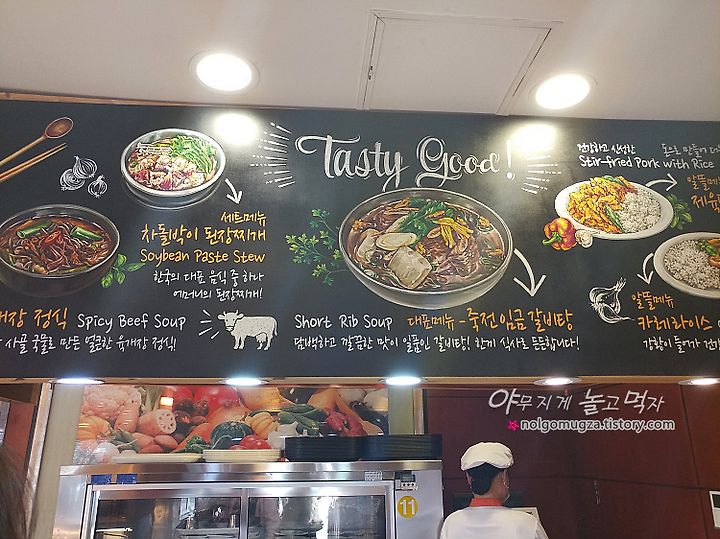 Tasty Good!
세트메뉴
차돌박이 된장찌개
Soybean Paste Stew
한국의 대표 음식 중 하나
어머니의 된장찌개!
정식 Spicy Beef Soup
사골 국물로 만든 얼큰한 육개장 정식!
Short Rib Soup 대표메뉴 - 죽전 임금 갈비탕
담백하고 깔끔한 맛이 일품인 갈비탕! 한끼 식사로 든든합니다!
건강하고 신선한
Stir-fried Pork with Rice
알뜰메뉴
알뜰메뉴
카레라이스
강황이 들어가
야무지게 놀고먹자
nolgomugza.tistory.com
11